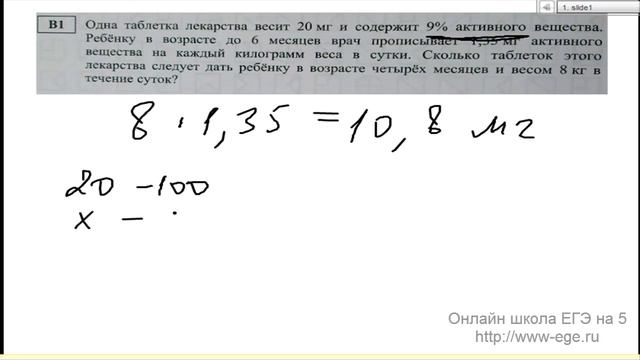 1. slide1
В1 Одна таблетка лекарства весит 20 мг и содержит 9% активного вещества.
Ребёнку в возрасте до 6 месяцев врач прописывает 1,35 мг активного
вещества на каждый килограмм веса в сутки. Сколько таблеток этого
лекарства следует дать ребёнку в возрасте четырёх месяцев и весом 8 кг в
течение суток?
8 · 1,35 = 10,8 мг
20 – 100
х –
Онлайн школа ЕГЭ на 5
http://www-ege.ru